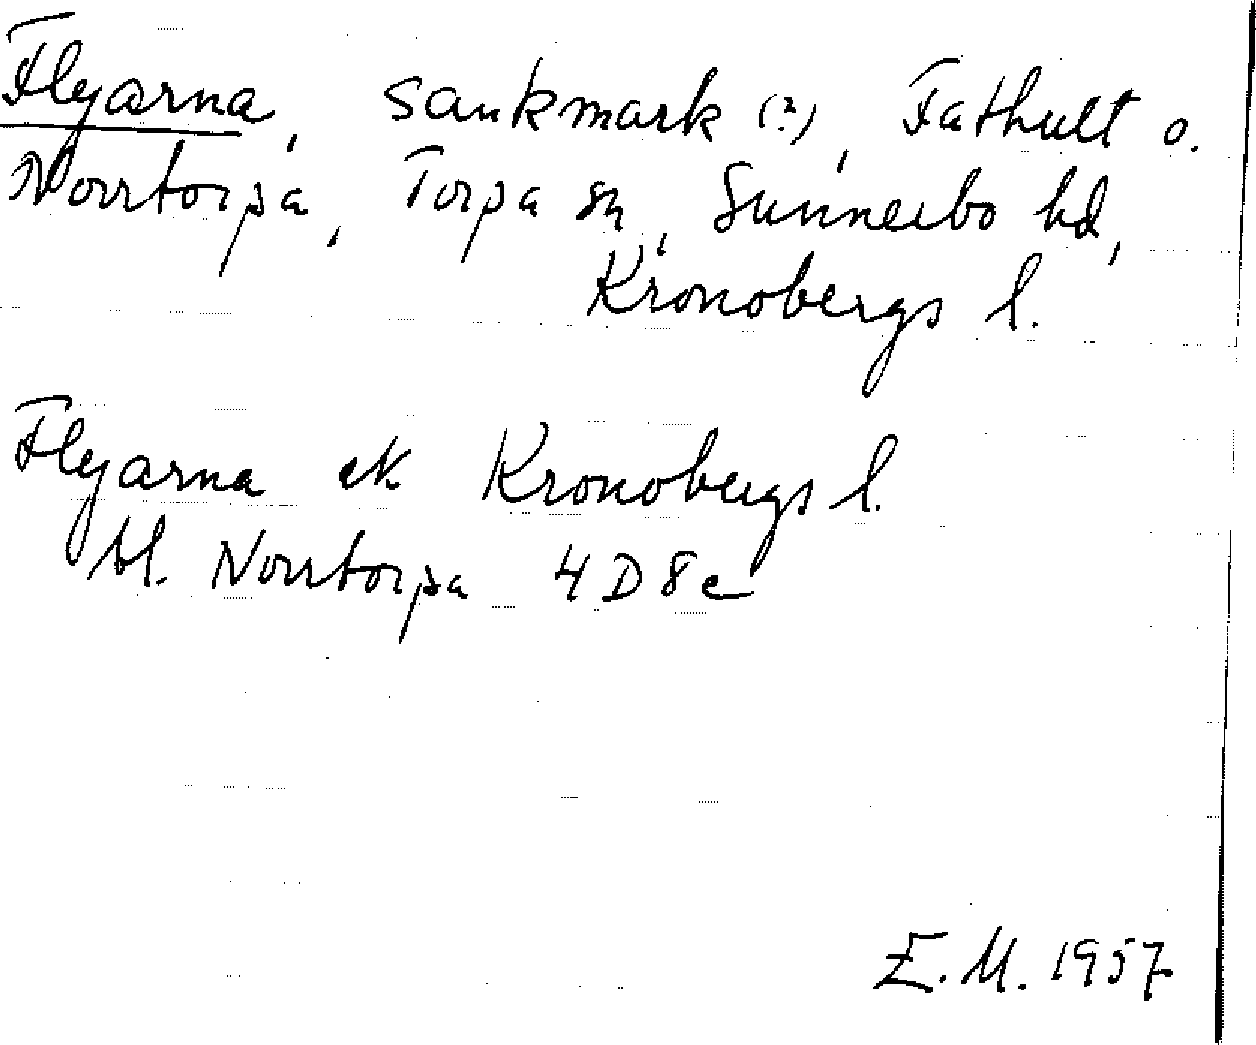 Flyarna, sankmark (?), Fathult o.
Norrtorpa, Torpa sn, Sunnerbo hd,
Kronobergs l.
Flyarna ek Kronobergs l.
bl. Norrtorpa 4D8e
E.M. 1957